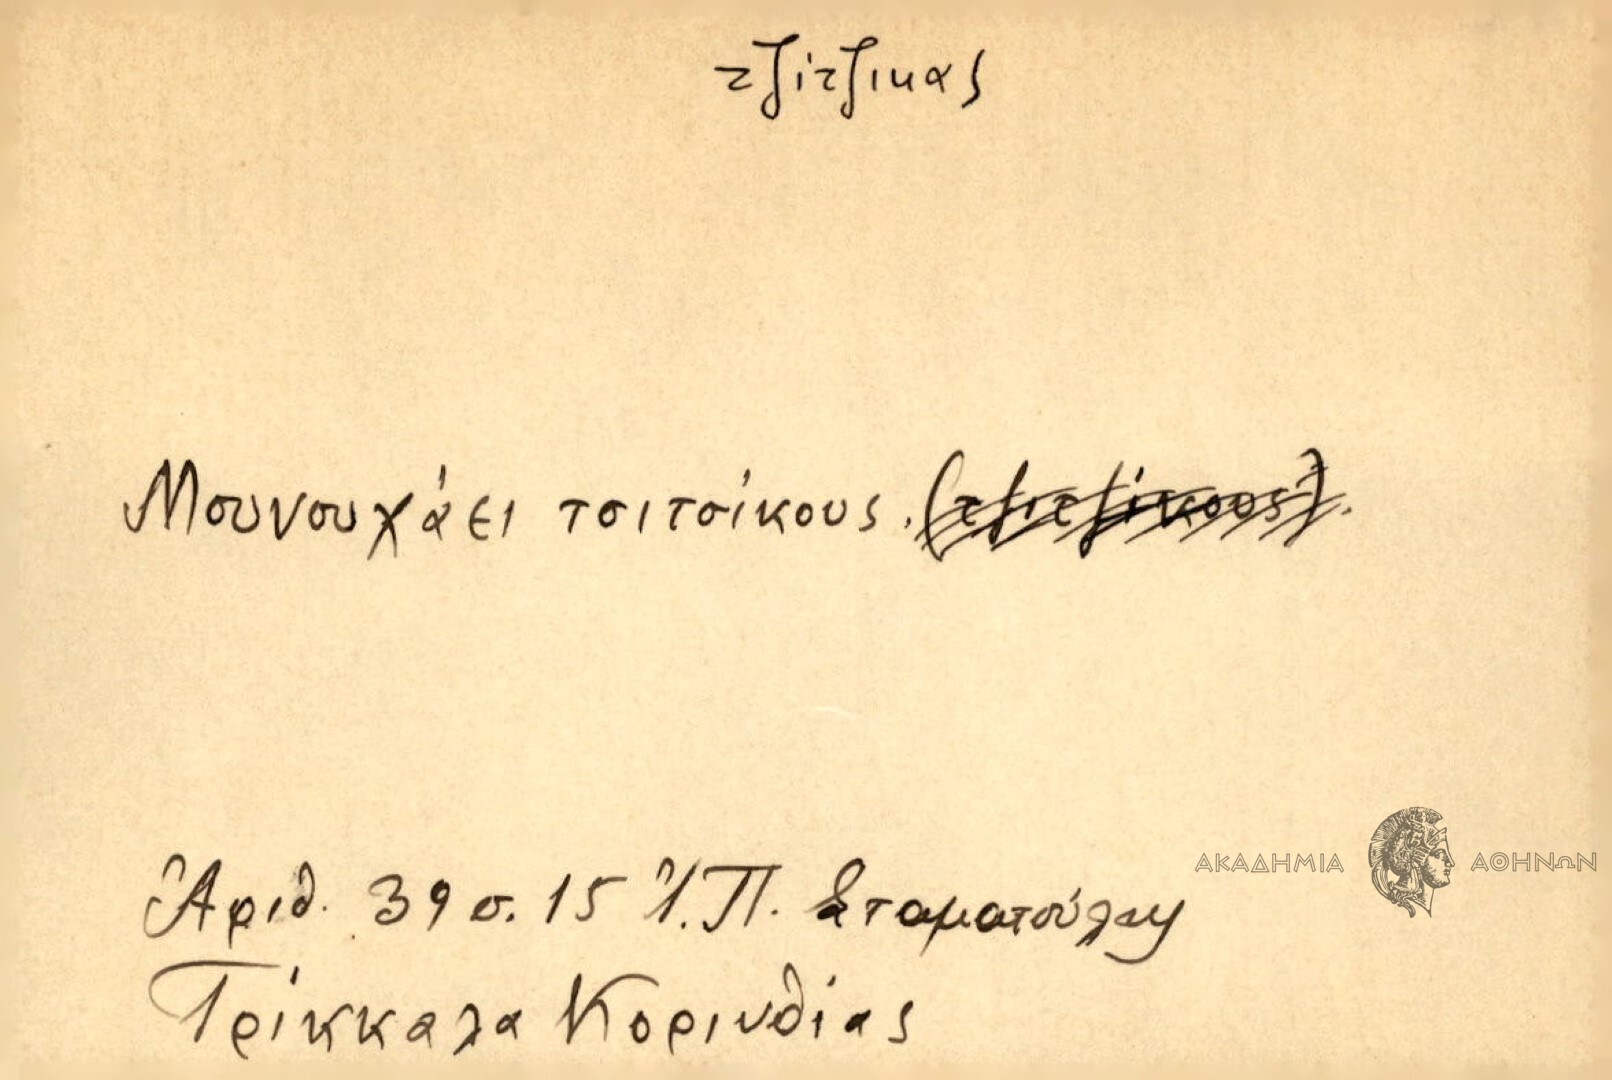 τζίτζικας
Μουνουχάει τσιτσίκους. (τζιτζίκους).
Ἀριθ. 39 σ. 15 Ἰ. Π. Σταματούλη
Τρίκκαλα Κορινθίας
ΑΚΑΔΗΜΙΑ ΑΘΗΝΩΝ